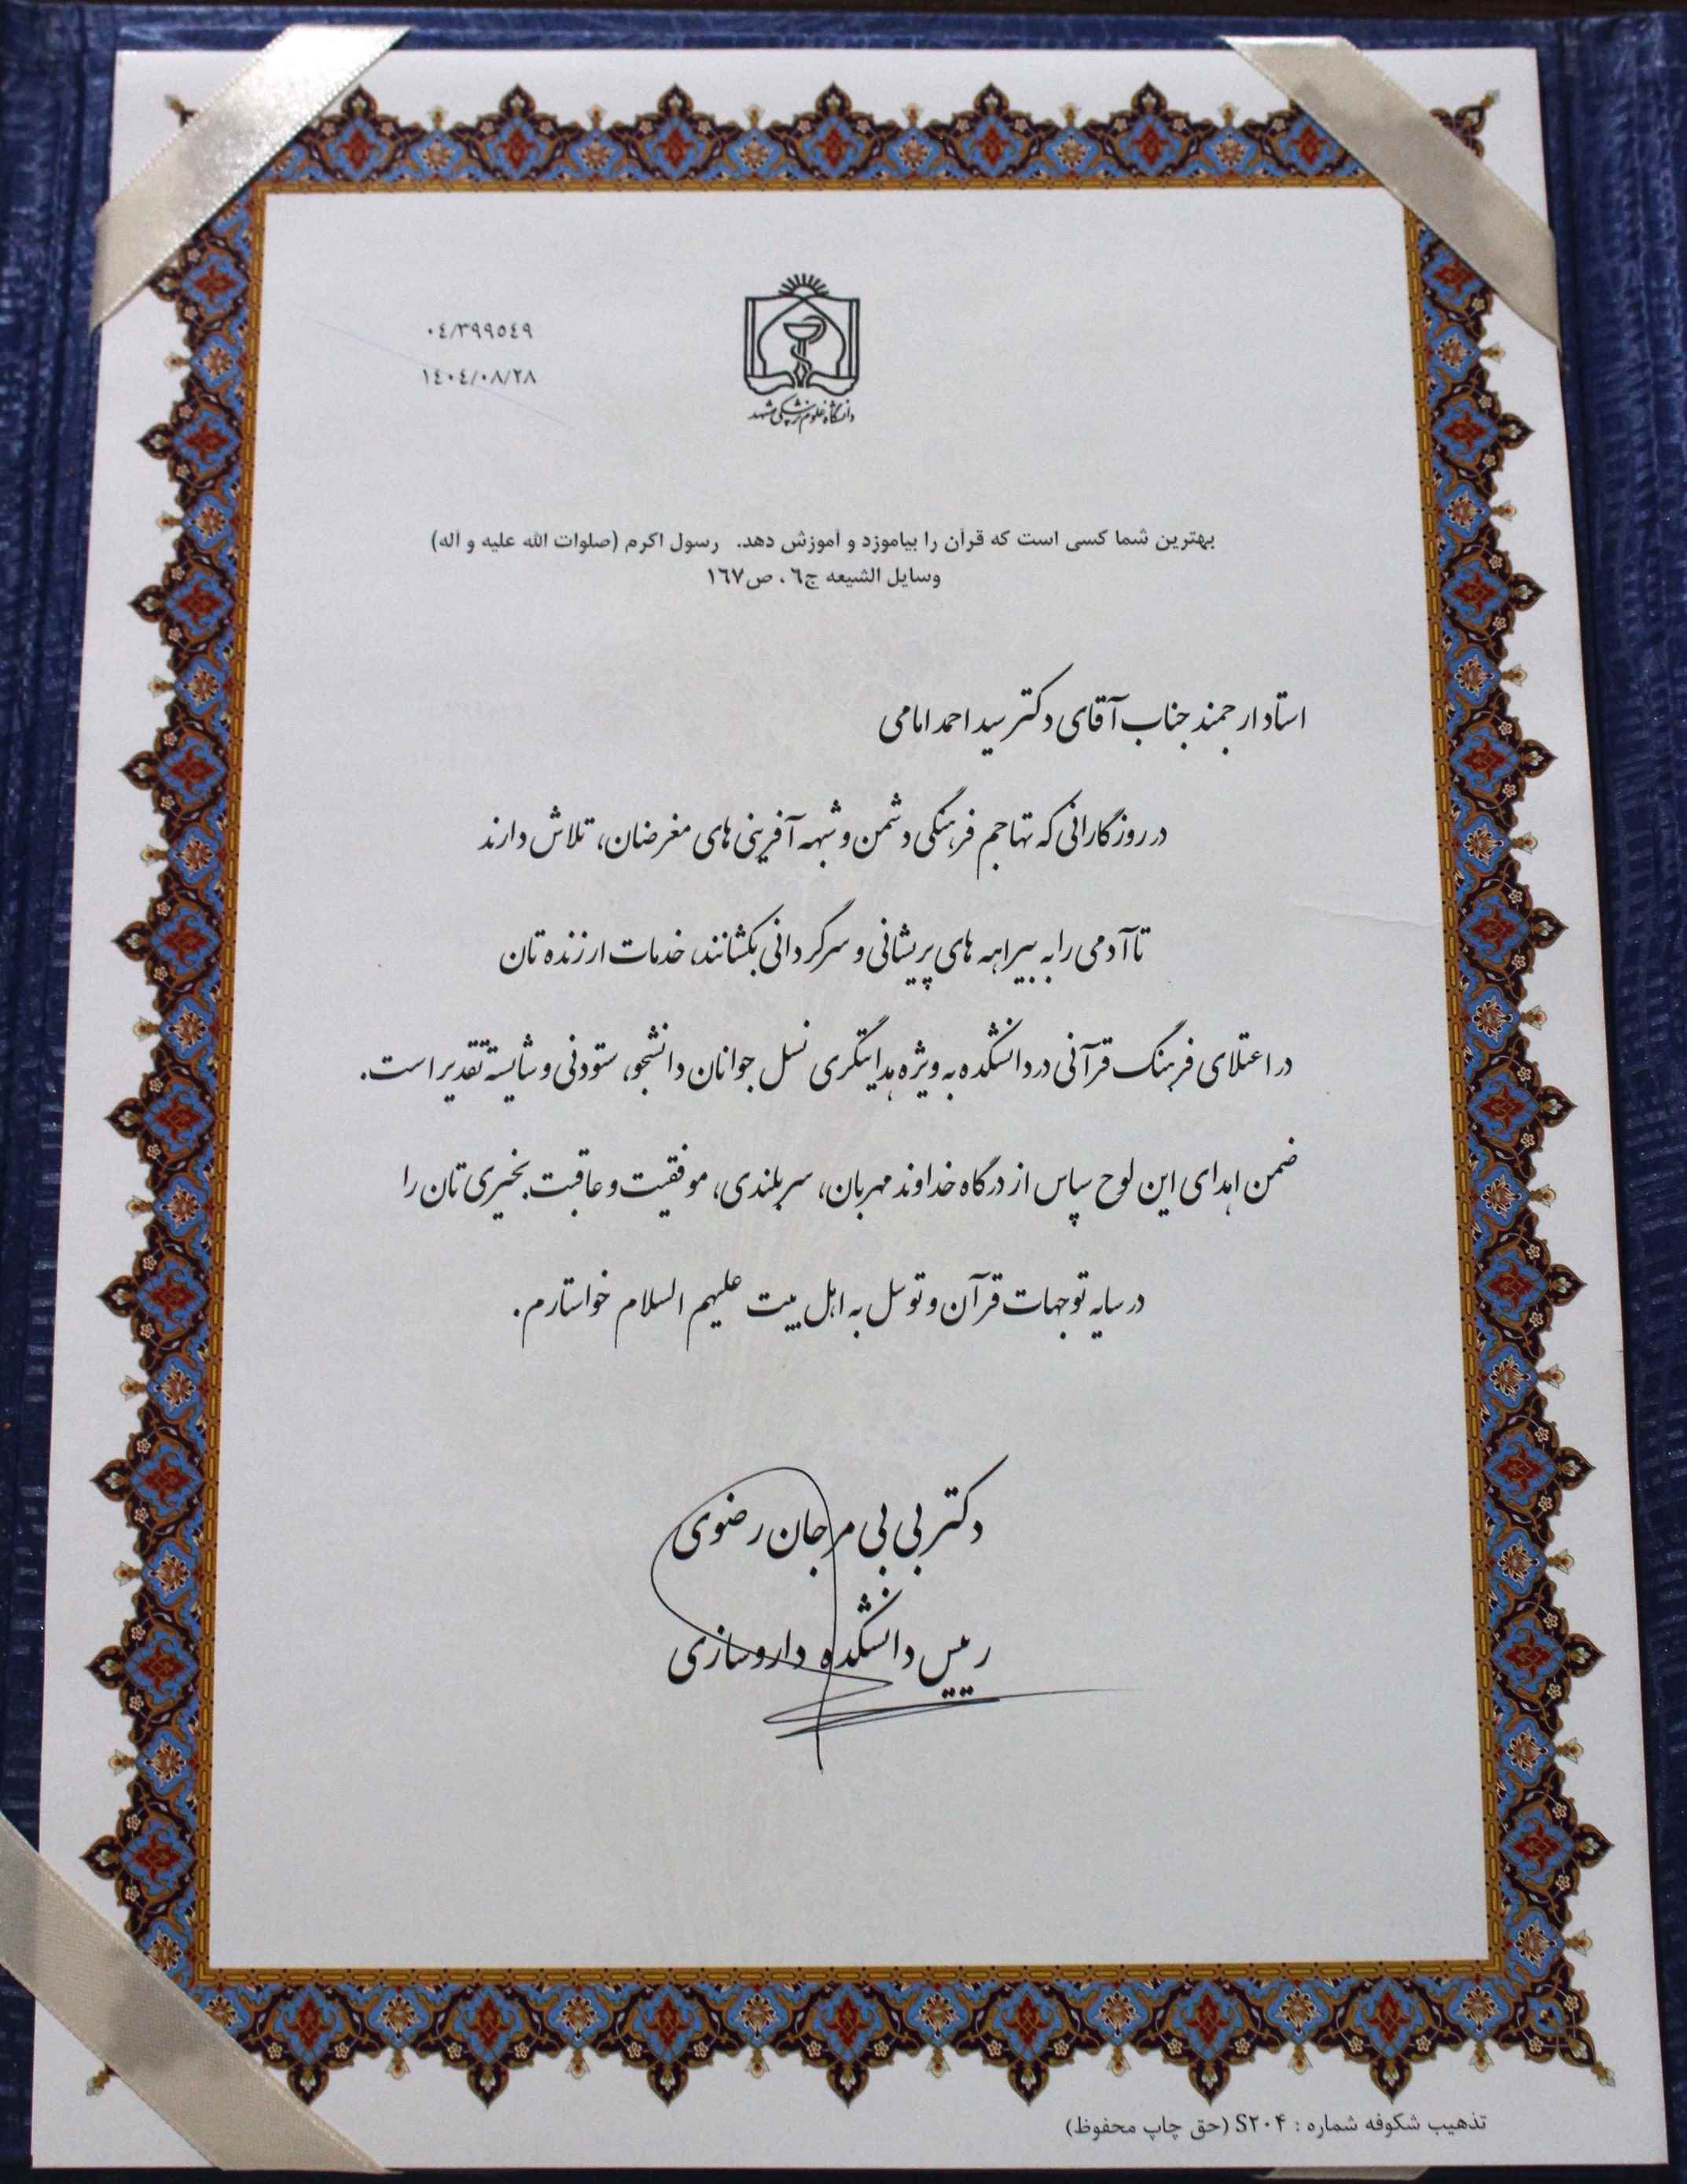 دانشگاه علوم پزشکی مشهد
٠٤/٣٩٩٥٤٩
١٤٠٤/٠٨/٢٨
بهترین شما کسی است که قرآن را بیاموزد و آموزش دهد. رسول اکرم (صلوات الله علیه و آله)
وسایل الشیعه ج٦، ص١٦٧
استاد ارجمند جناب آقای دکتر سید احمد امامی
در روزگارانی که تهاجم فرهنگی دشمن و شبهه آفرینی های مغرضان، تلاش دارند
تا آدمی را به بیراهه های پریشانی و سرگردانی بکشانند، خدمات ارزنده تان
در اعتلای فرهنگ قرآنی در دانشکده به ویژه هدایتگری نسل جوانان دانشجو، ستودنی و شایسته تقدیر است.
ضمن اهدای این لوح سپاس از درگاه خداوند مهربان، سربلندی، موفقیت و عاقبت بخیری تان را
در سایه توجهات قرآن و توسل به اهل بیت علیهم السلام خواستارم.
دکتر بی بی مرجان رضوی
رییس دانشکده داروسازی
تذهیب شکوفه شماره : S۲۰۴ (حق چاپ محفوظ)